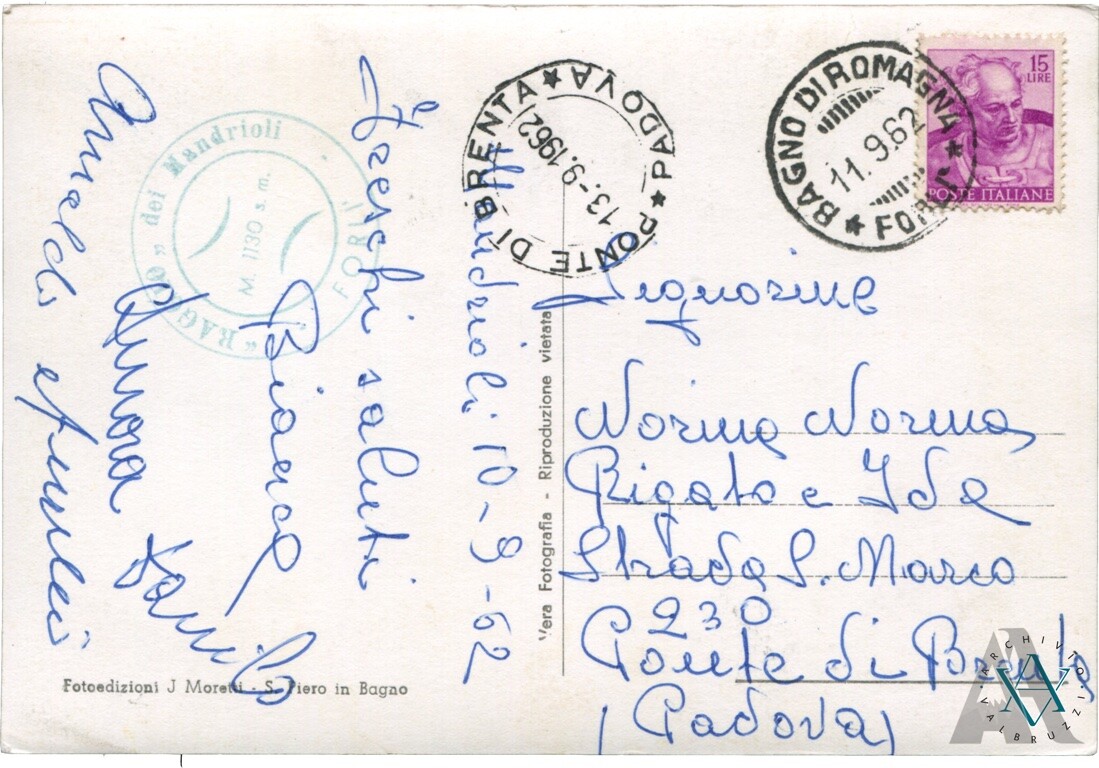 Mandrioli 10-9-62
Freschi saluti
Bianca
Danilo
"RAGGIO" dei Mandrioli
FORLÌ
M. 1130 s. m.
Fotoedizioni J Moretti - S. Piero in Bagno
Vera Fotografia - Riproduzione vietata
PONTE DI BRENTA ★ PADOVA ★
13.-9.1962
BAGNO DI ROMAGNA
11.9.62
★ FORLI' ★
15
LIRE
POSTE ITALIANE
Signorine
Norina Norma
Rigato e Ida
Strada S. Marco
230
Ponte di Brenta
(Padova)
ARCHIVIO.IZ
VALBRUZZI